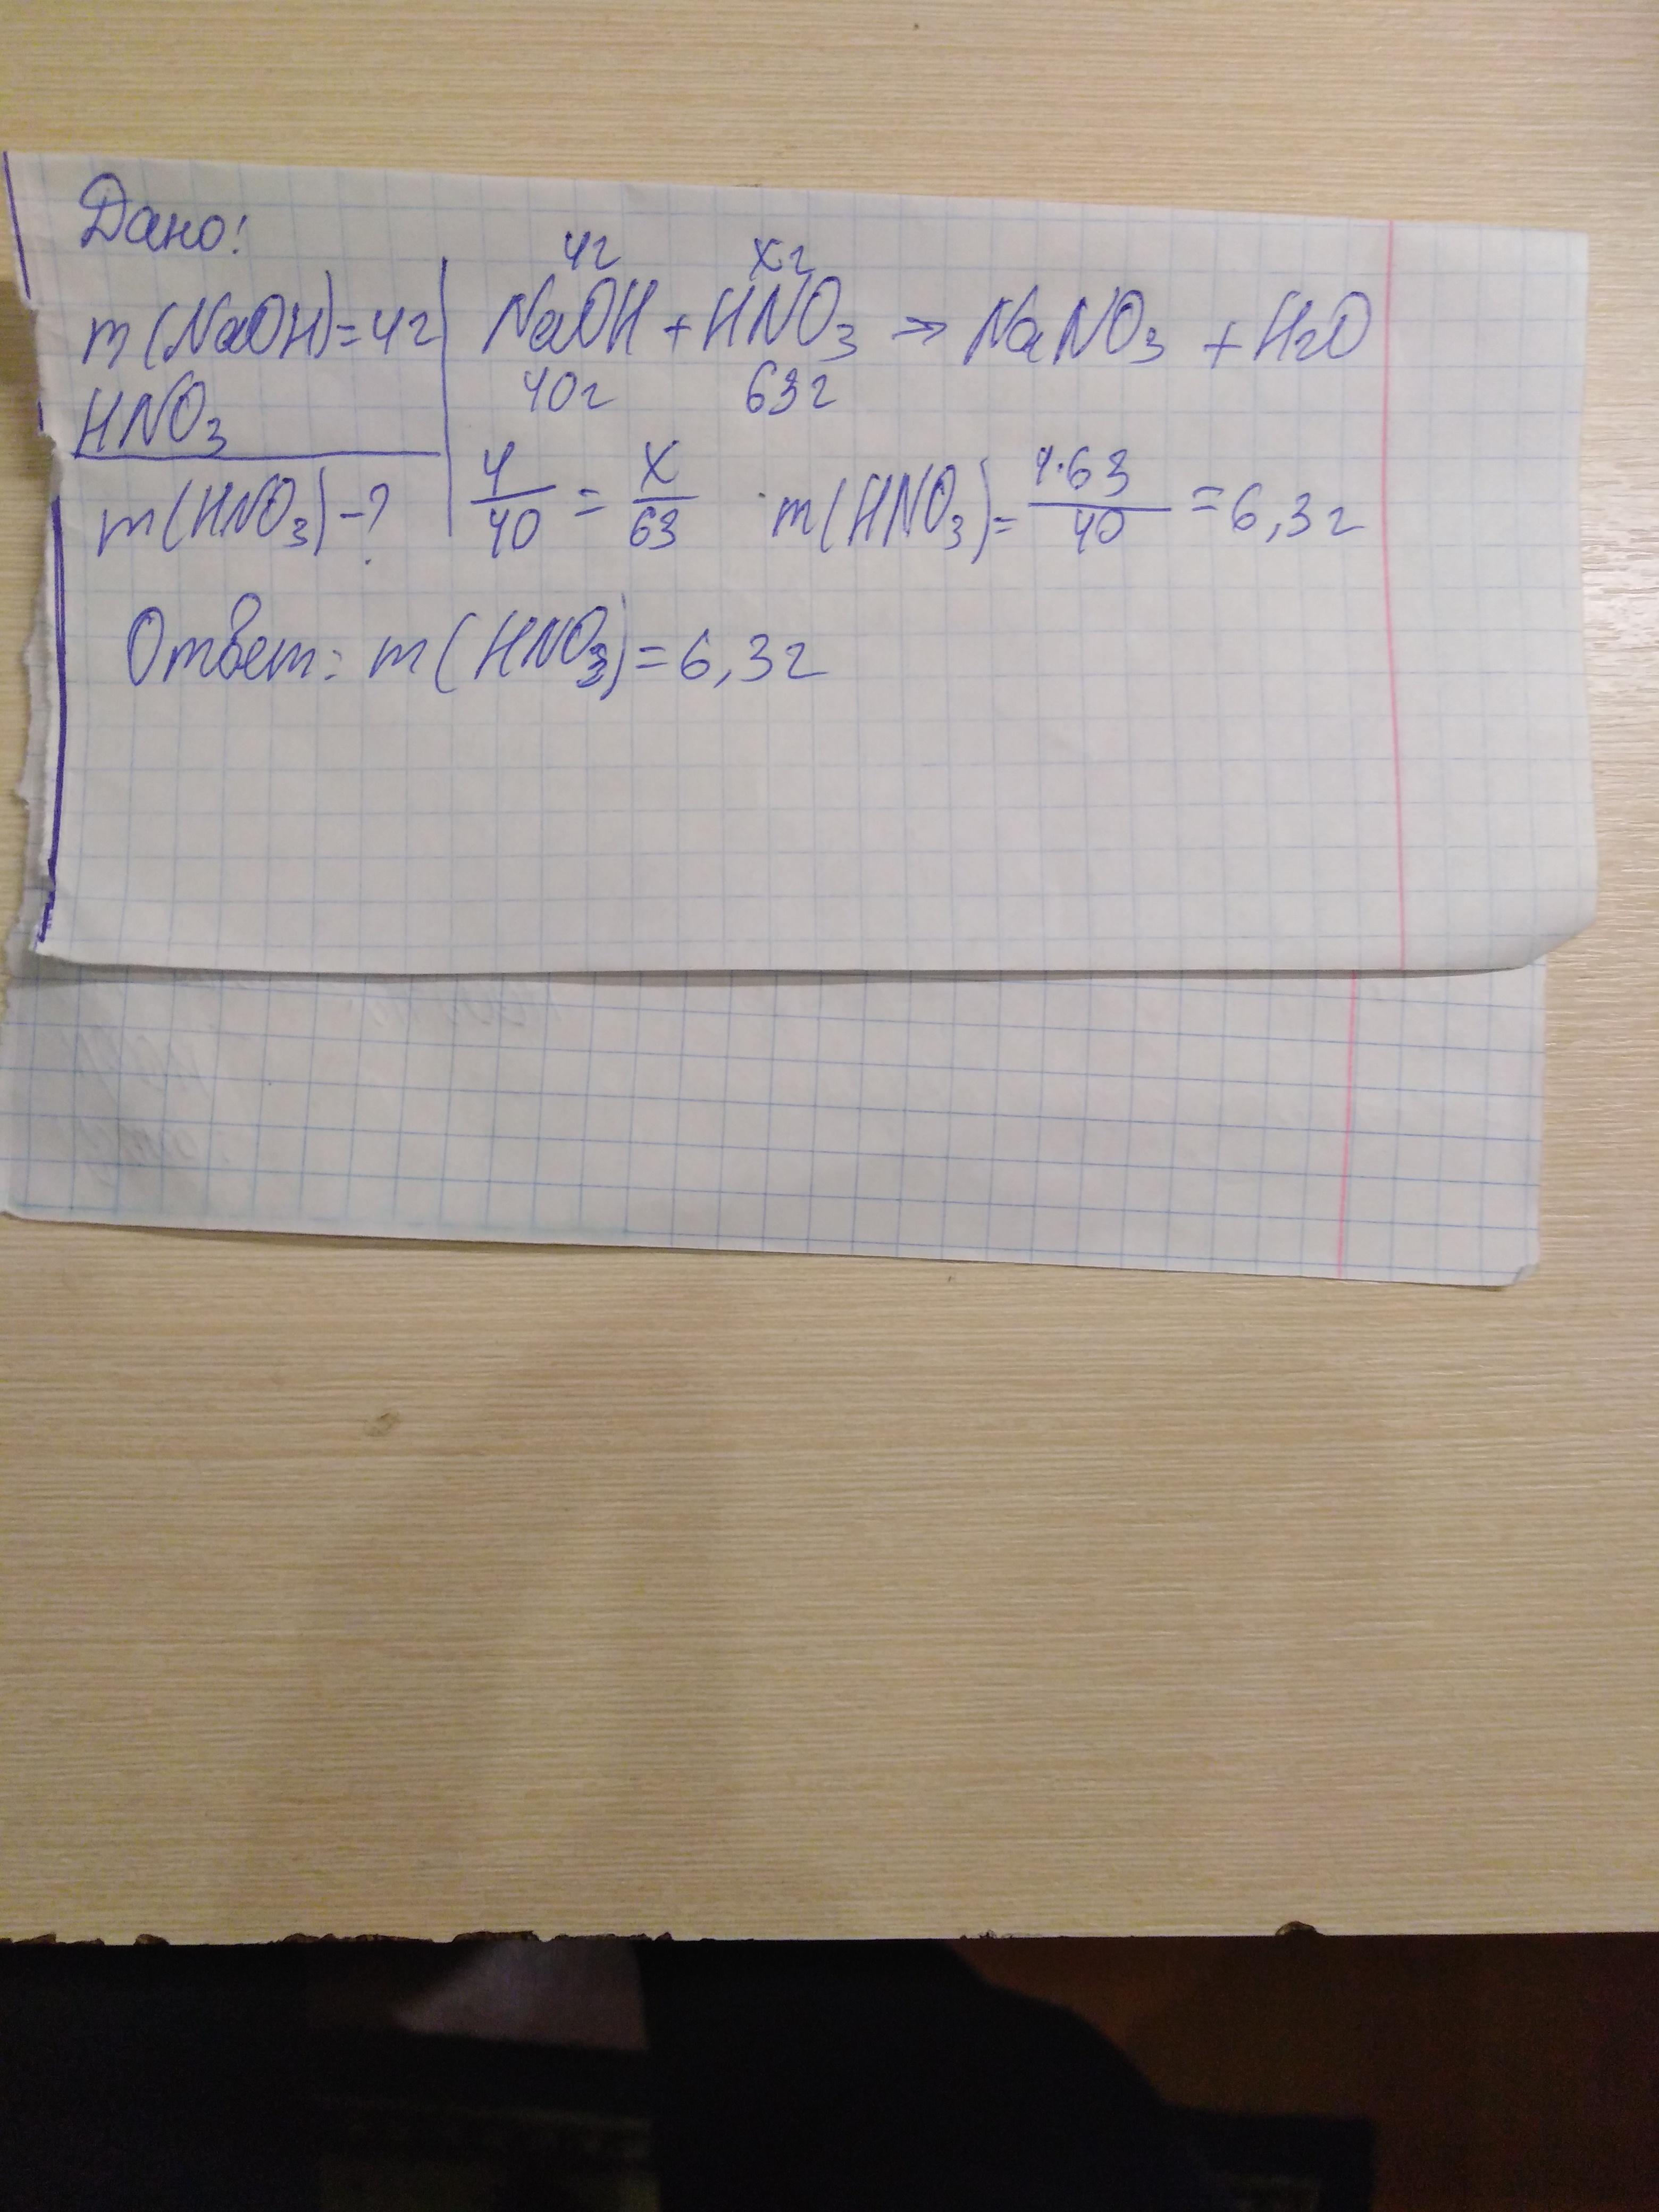 Дано:
m(NaOH)=4г
HNO3
m(HNO3)-?
4г xг
NaOH + HNO3 → NaNO3 + H2O
40г 63г
4/40 = x/63 m(HNO3)= 4·63/40 = 6,3г
Ответ: m(HNO3)=6,3г